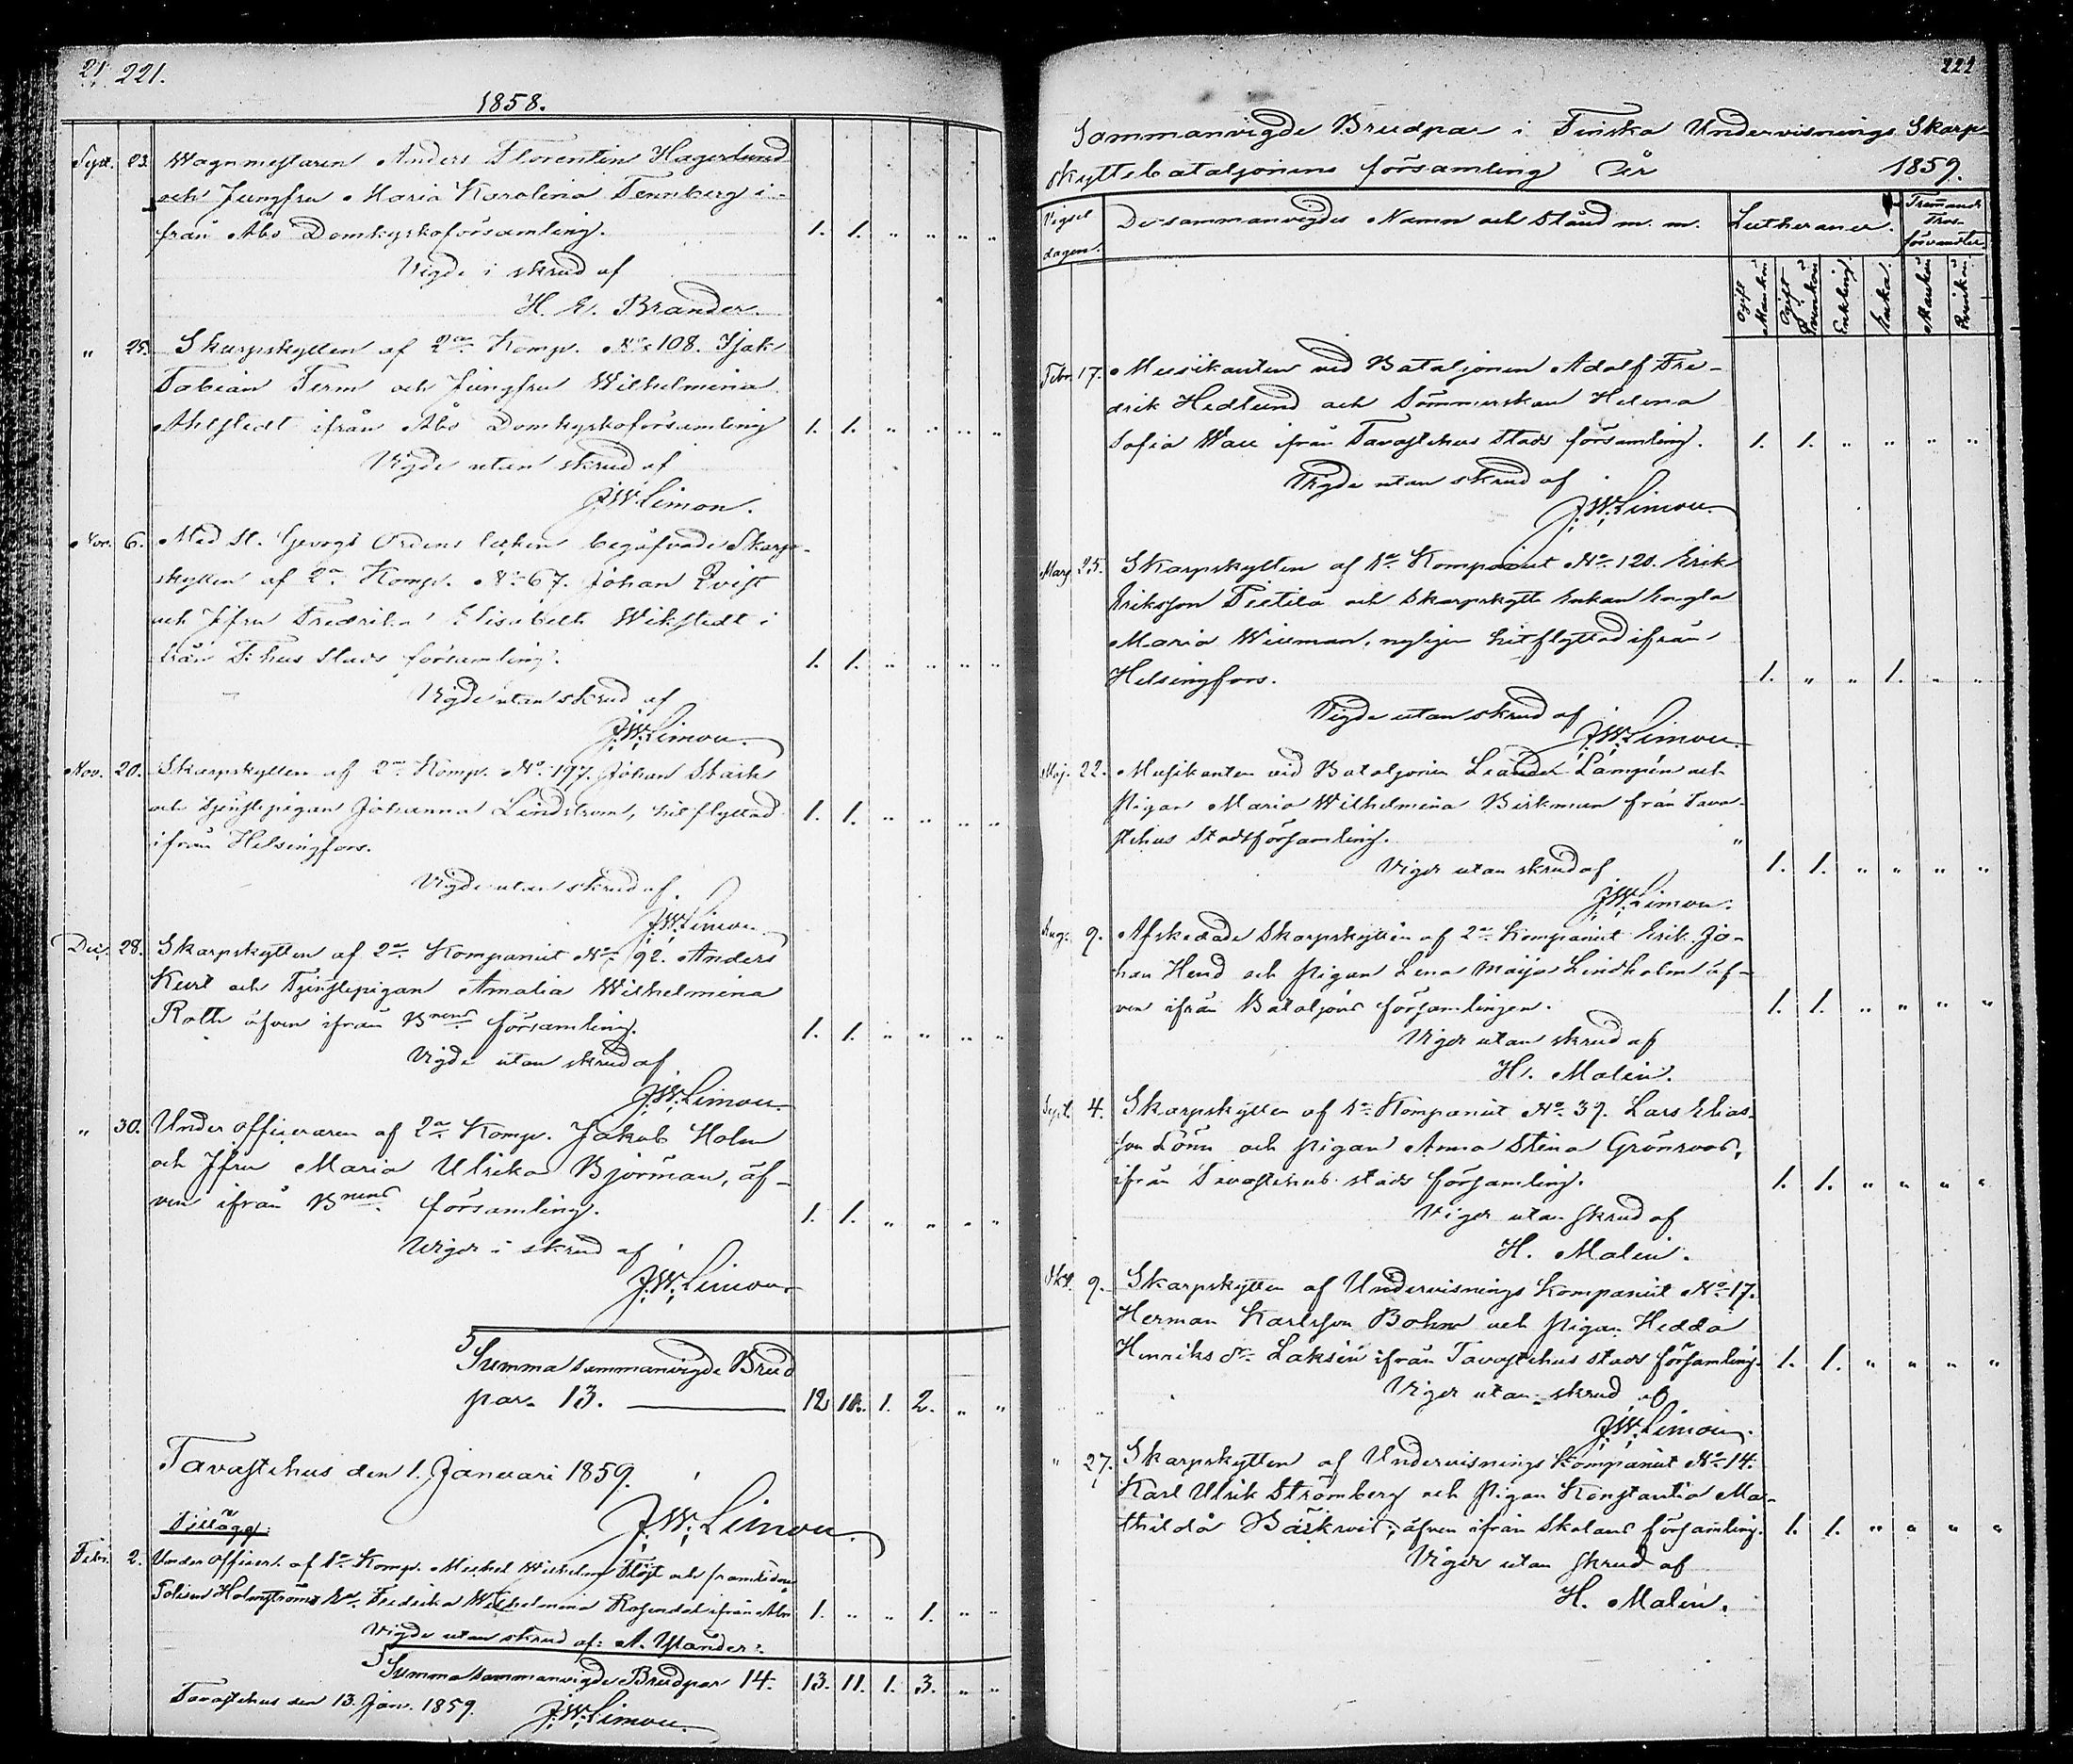 21 221.
1858.
Sept. 23. Wagnmestaren Anders Florentin Hagerlund
och Jungfru Maria Karolina Tennberg i-
från Åbo Domkyrkoförsamling. 1. 1. " " " "
Vigde i skrud af
H. E. Brander.
" 25. Skarpskytten af 2a Komp. No 108. Isak
Fabian Ferm och Jungfru Wilhelmina
Ahlstedt ifrån Åbo Domkyrkoförsamling 1. 1. " " " "
Vigde utan skrud af
J.W. Limon.
Nov. 6. Med St. Georgs Ordens tecken begåfvade Skarp-
skytten af 2a Komp. No 67. Johan Qvist
och Jfru Fredrika Elisabeth Wikstedt i
från T:hus Stads församling. 1. 1. " " " "
Vigde utan skrud af
J.W. Limon.
Nov. 20. Skarpskytten af 2a Komp. No 197. Johan Stark
och Tjenstepigan Johanna Lindström, hitflyttad 1. 1. " " " "
ifrån Helsingfors.
Vigde utan skrud af
J.W. Limon.
Dec. 28. Skarpskytten af 2a Kompaniet No 92. Anders
Kurt och Tjenstepigan Amalia Wilhelmina
Roth äfven ifrån Bnens församling. 1. 1. " " " "
Vigde utan skrud af
J.W. Limon.
" 30. Under officeraren af 2a Komp. Jakob Holm
och Jfru Maria Ulrika Björman, äf-
ven ifrån Bnens församling. 1. 1. " " " "
Viger i skrud af
J.W. Limon.
Summa sammanvigde Brud
par 13. 12 10. 1. 2. " "
Tavastehus den 1. Januari 1859.
J.W. Limon
Tillägg:
Febr. 2. Under officer. af 1a Komp. Mickel Wilhelm Flöjt och framlidne
Holmströms Ea. Fredrika Wilhelmina Rosendal ifrån Åbo 1. " " 1. " "
Vigde utan skrud af: A.
Summa sammanvigde Brudpar 14. 13. 11. 1. 3. " "
Tavastehus den 13. Jan. 1859. J.W. Limon.
222
Sammanvigde Brudpar i Finska Undervisnings Skarp-
skyttebataljonens församling År 1859.
Vigsel
dagen. De sammanvigdes Namn och Stånd m. m. Lutheraner. Främmande
Tros-
förvandter
Ogift Mankön Ogift Qvinkön Enkling Enka. Mankön Qvinkön
Febr. 17. Musikanten vid Bataljonen Adolf Fre-
drik Hedlund och Sömmerskan Helena
Sofia Wall ifrån Tavastehus Stads församling. 1. 1. " " " "
Vigde utan skrud af
J.W. Limon.
Mars 25. Skarpskytten af 1a Kompaniet No 120. Erik
Eriksson Pietilä och Skarpskytte Enkan Engla
Maria Willman, nyligen hitflyttad ifrån
Helsingfors. 1. " " 1. " "
Vigde utan skrud af
J.W. Limon.
Maj. 22. Musikanten vid Bataljonen Leander Lampén och
Pigan Maria Wilhelmina Birkman från Tava-
stehus Stadsförsamling. 1. 1. " " " "
Viger utan skrud af
J.W. Limon.
Aug. 9. Afskedade Skarpskytten af 2a Kompaniet Erik Jo-
han Hend och Pigan Lena Maija Lindholm äf-
ven ifrån Bataljons församlingen. 1. 1. " " " "
Viger utan skrud af
H. Malin.
Sept. 4. Skarpskytten af 1a Kompaniet No 39. Lars Elias-
son Lönn och Pigan Anna Stina Grönroos,
ifrån Tavastehus stads församling. 1. 1. " " " "
Viger utan skrud af
H. Malin.
Okt. 9. Skarpskytten af Undervisnings Kompaniet No 17.
Herman Karlsson Bohm och Pigan Hedda
Henriks dr. Laksén ifrån Tavastehus stads församling. 1. 1. " " " "
Viger utan skrud af
J.W. Limon.
" 27. Skarpskytten af Undervisnings Kompaniet No 14.
Karl Ulrik Strömberg och Pigan Konstantia Ma-
thilda, äfven ifrån Skolans församling. 1. 1. " " " "
Viger utan skrud af
H. Malin.